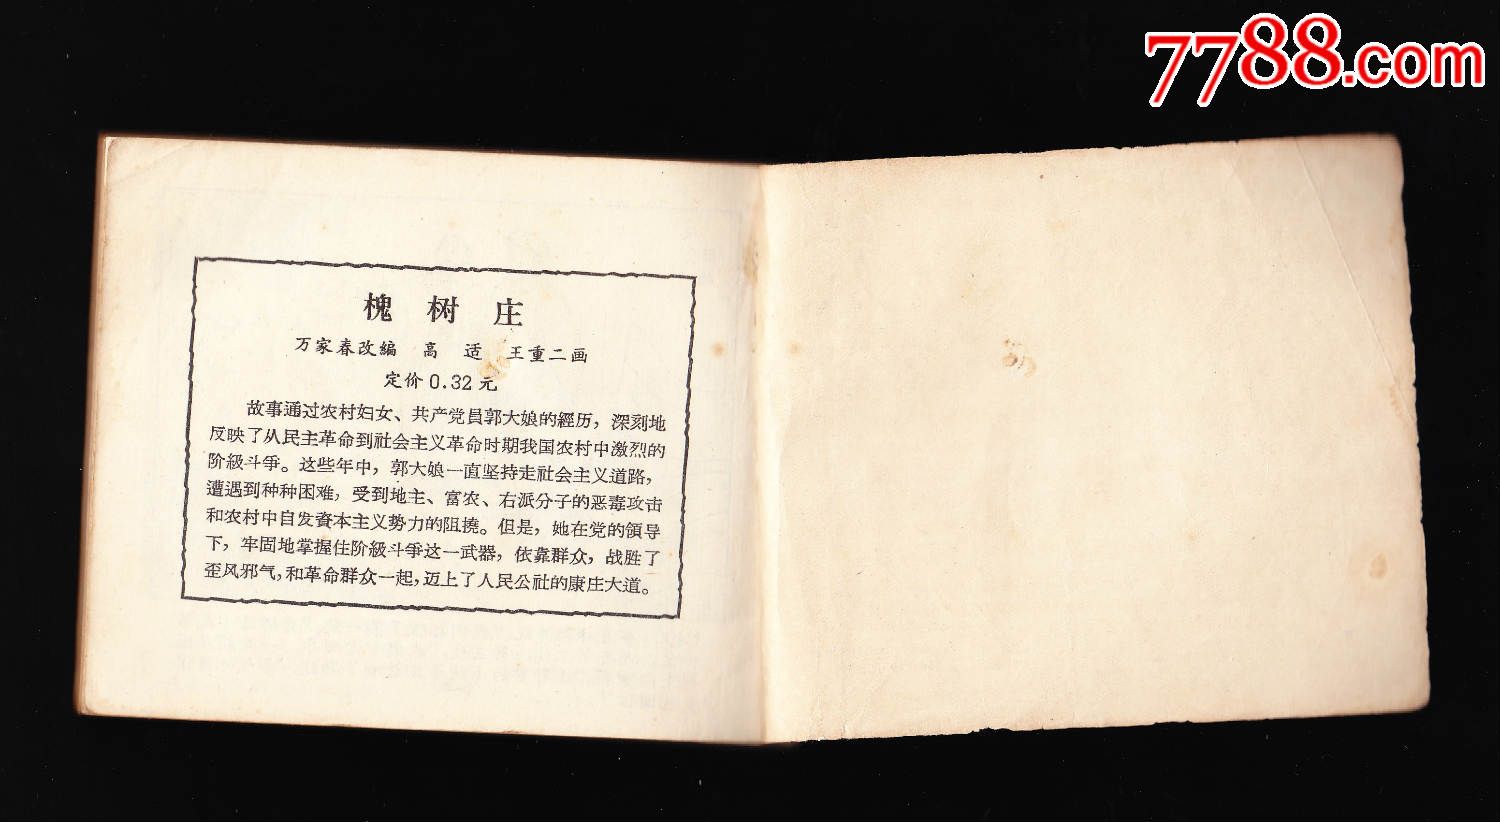 7788.com
槐树庄
万家春改編 高 适 王重二画
定价0.32元
故事通过农村妇女、共产党員郭大娘的經历，深刻地
反映了从民主革命到社会主义革命时期我国农村中激烈的
阶級斗爭。这些年中，郭大娘一直坚持走社会主义道路，
遭遇到种种困难，受到地主、富农、右派分子的恶毒攻击
和农村中自发資本主义势力的阻撓。但是，她在党的領导
下，牢固地掌握住阶級斗爭这一武器，依靠群众，战胜了
歪风邪气，和革命群众一起，迈上了人民公社的康庄大道。